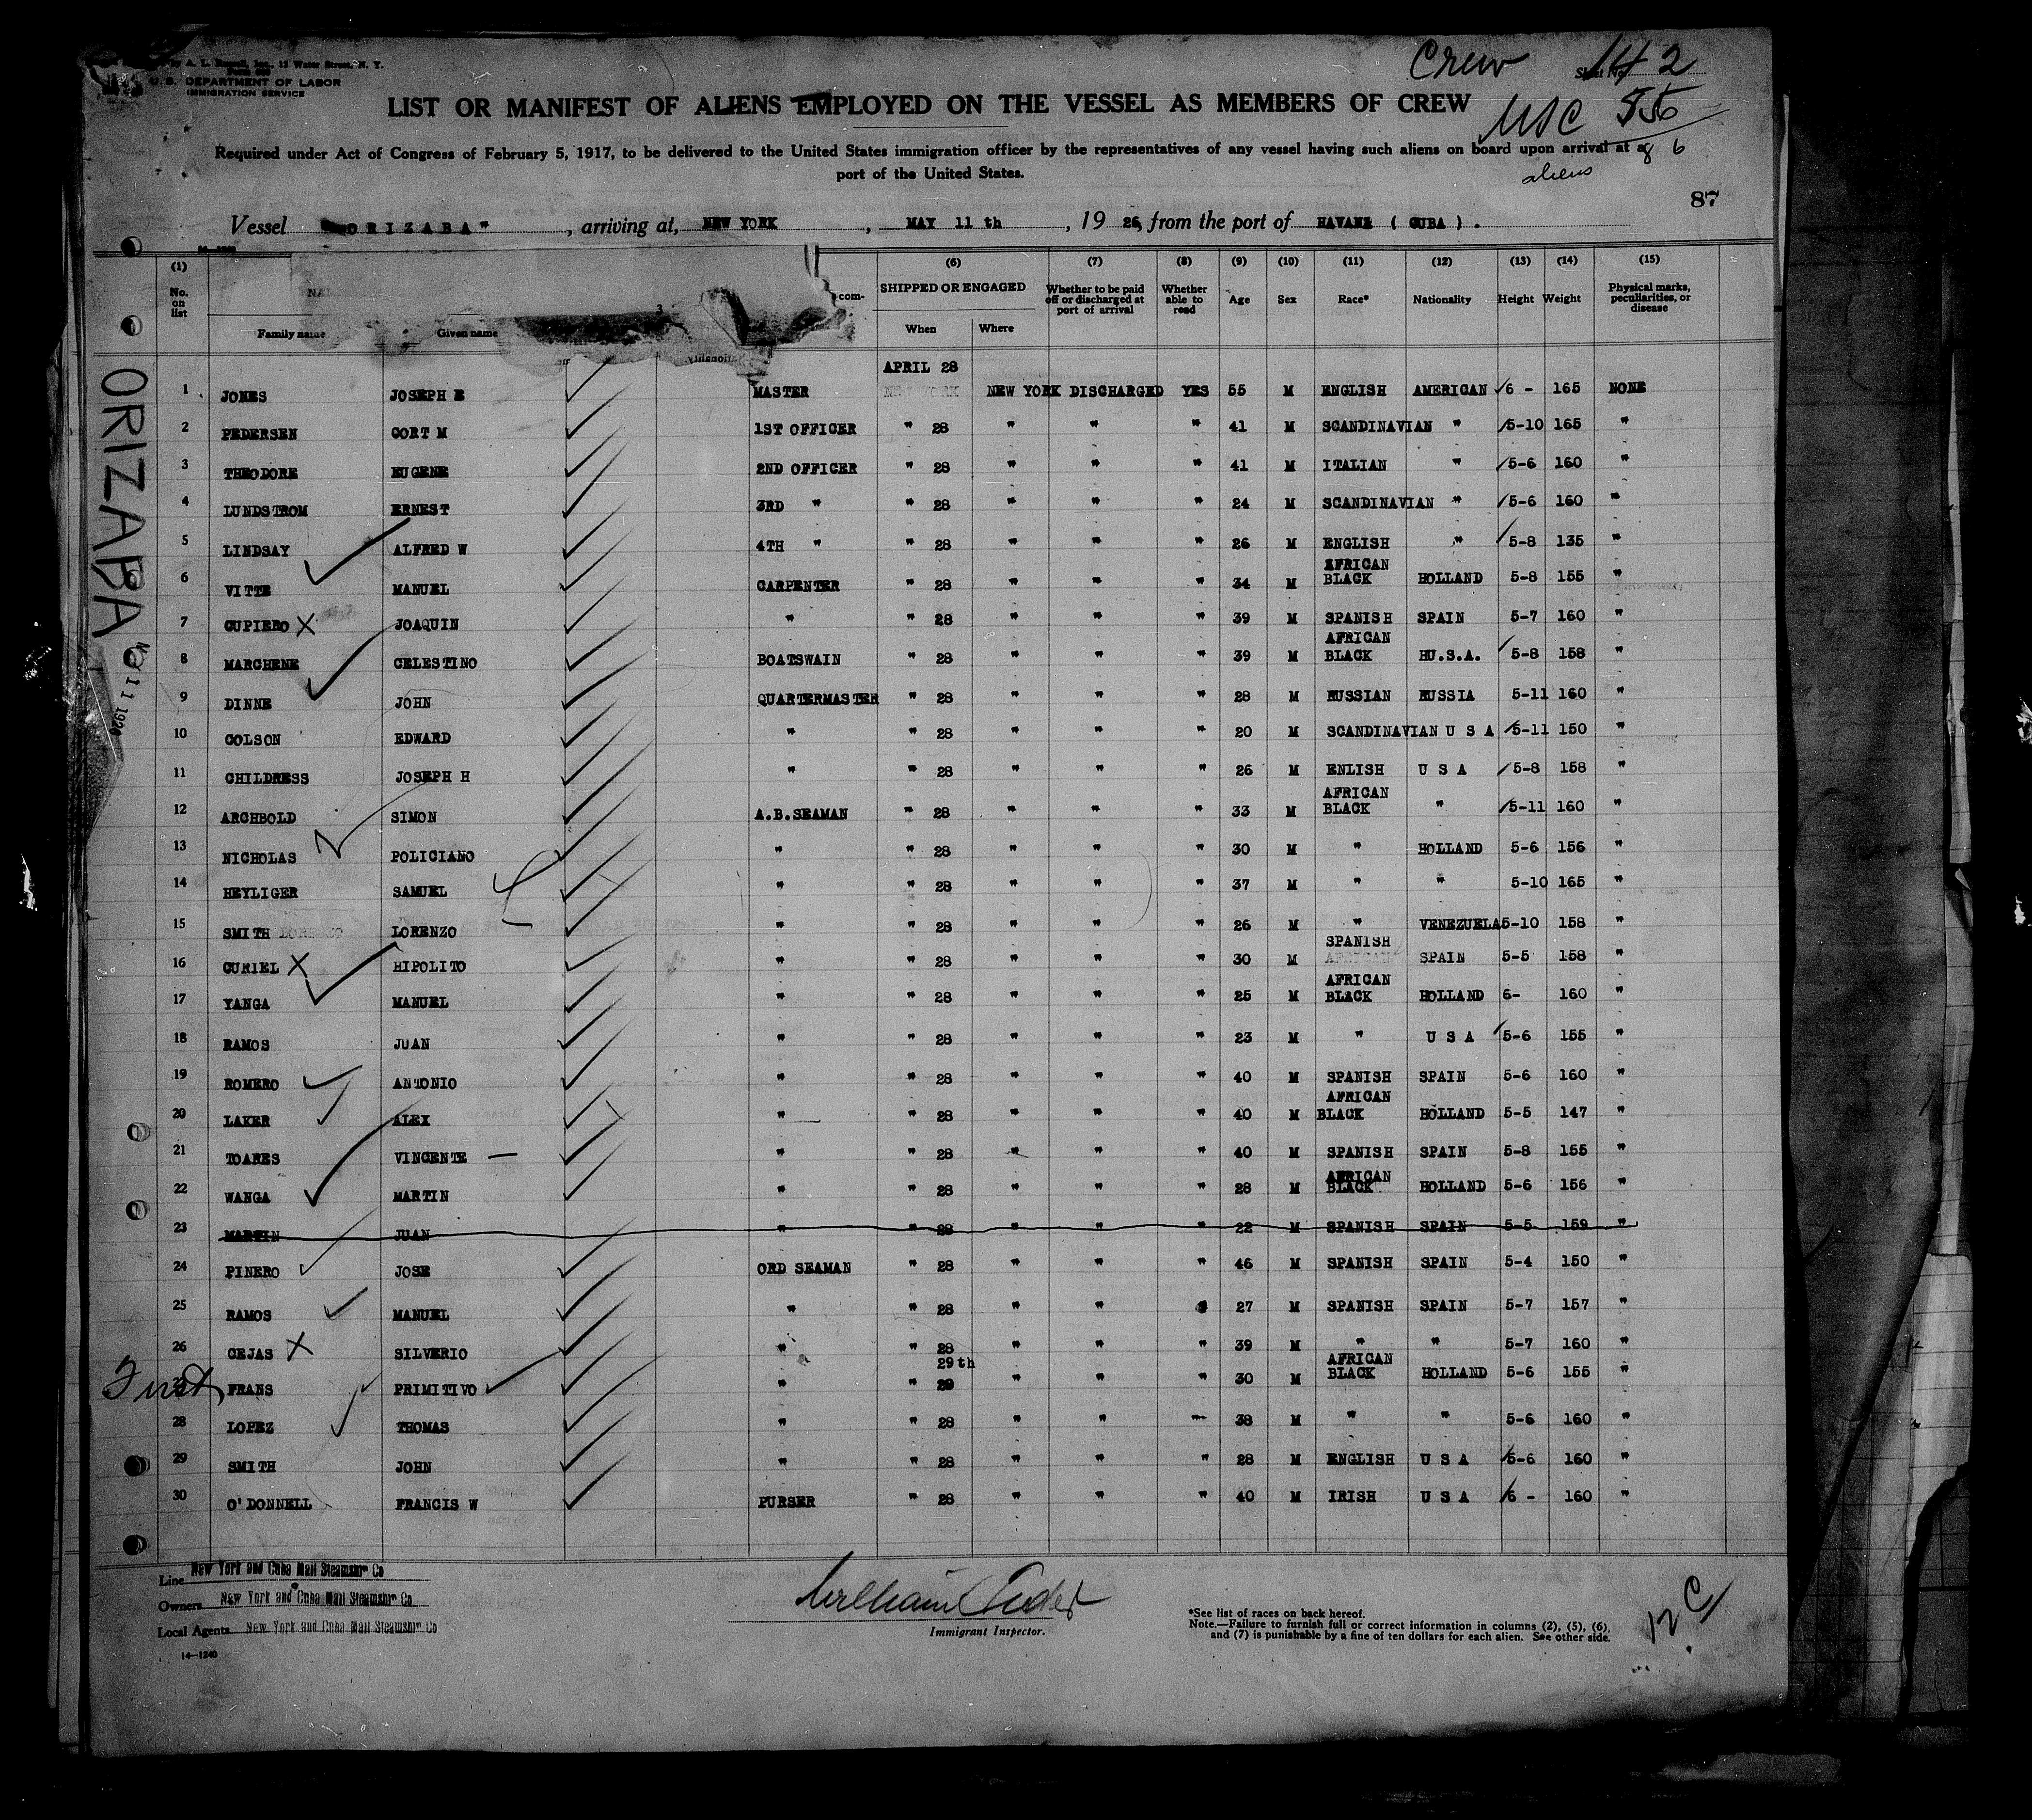 Crew 142
by A. L. Russell, Inc., 15 Water Street, N. Y.
U. S. DEPARTMENT OF LABOR
IMMIGRATION SERVICE
LIST OR MANIFEST OF ALIENS EMPLOYED ON THE VESSEL AS MEMBERS OF CREW
USC 56
Required under Act of Congress of February 5, 1917, to be delivered to the United States immigration officer by the representatives of any vessel having such aliens on board upon arrival at a
port of the United States.
aliens 86
87
Vessel "ORIZABA", arriving at, NEW YORK, MAY 11 th, 1926, from the port of HAVANA ( CUBA ).
(1) (6) (7) (8) (9) (10) (11) (12) (13) (14) (15)
No. on list Family name Given name com- SHIPPED OR ENGAGED When Where Whether to be paid off or discharged at port of arrival Whether able to read Age Sex Race* Nationality Height Weight Physical marks, peculiarities, or disease
APRIL 28
1 JONES JOSEPH E MASTER NEW YORK NEW YORK DISCHARGED YES 55 M ENGLISH AMERICAN 6 - 165 NONE
2 PEDERSEN CORT M 1ST OFFICER " 28 " " " 41 M SCANDINAVIAN " 5-10 165 "
3 THEODORE EUGENE 2ND OFFICER " 28 " " " 41 M ITALIAN " 5-6 160 "
4 LUNDSTROM ERNEST 3RD " " 28 " " " 24 M SCANDINAVIAN " 5-6 160 "
5 LINDSAY ALFRED W 4TH " " 28 " " " 26 M ENGLISH " 5-8 135 "
6 VITTE MANUEL CARPENTER " 28 " " " 34 M AFRICAN BLACK HOLLAND 5-8 155 "
7 CUPIERO X JOAQUIN " " 28 " " " 39 M SPANISH SPAIN 5-7 160 "
8 MARCHENE CELESTINO BOATSWAIN " 28 " " " 39 M AFRICAN BLACK HU.S.A. 5-8 158 "
9 DINNE JOHN QUARTERMASTER " 28 " " " 28 M RUSSIAN RUSSIA 5-11 160 "
10 COLSON EDWARD " " 28 " " " 20 M SCANDINAVIAN U S A 5-11 150 "
11 CHILDRESS JOSEPH H " " 28 " " " 26 M ENLISH U S A 5-8 158 "
12 ARCHBOLD SIMON A.B.SEAMAN " 28 " " " 33 M AFRICAN BLACK " 5-11 160 "
13 NICHOLAS POLICIANO " " 28 " " " 30 M " HOLLAND 5-6 156 "
14 HEYLIGER SAMUEL " " 28 " " " 37 M " " 5-10 165 "
15 SMITH LORENZO LORENZO " " 28 " " " 26 M " VENEZUELA 5-10 158 "
16 CURIEL X HIPOLITO " " 28 " " " 30 M SPANISH AFRICAN SPAIN 5-5 158 "
17 YANGA MANUEL " " 28 " " " 25 M AFRICAN BLACK HOLLAND 6- 160 "
18 RAMOS JUAN " " 28 " " " 23 M " U S A 5-6 155 "
19 ROMERO ANTONIO " " 28 " " " 40 M SPANISH SPAIN 5-6 160 "
20 LAKER ALEX " " 28 " " " 40 M AFRICAN BLACK HOLLAND 5-5 147 "
21 TOARES VINCENTE — " " 28 " " " 40 M SPANISH SPAIN 5-8 155 "
22 WANGA MARTIN " " 28 " " " 28 M AFRICAN BLACK HOLLAND 5-6 156 "
23 MARTIN JUAN " " 28 " " " 22 M SPANISH SPAIN 5-5 159 "
24 PINERO JOSE ORD SEAMAN " 28 " " " 46 M SPANISH SPAIN 5-4 150 "
25 RAMOS MANUEL " " 28 " " " 27 M SPANISH SPAIN 5-7 157 "
26 CEJAS X SILVERIO " " 28 " " " 39 M " " 5-7 160 "
First FRANS PRIMITIVO " " 29th 29 " " " 30 M AFRICAN BLACK HOLLAND 5-6 155 "
28 LOPEZ THOMAS " " 28 " " " 38 M " " 5-6 160 "
29 SMITH JOHN " " 28 " " " 28 M ENGLISH U S A 5-6 160 "
30 O'DONNELL FRANCIS W PURSER " 28 " " " 40 M IRISH U S A 6 - 160 "
ORIZABA
11 1926
Line New York and Cuba Mail Steamship Co
Owners New York and Cuba Mail Steamship Co
Local Agents New York and Cuba Mail Steamship Co
14—1240
Immigrant Inspector.
*See list of races on back hereof.
Note.—Failure to furnish full or correct information in columns (2), (5), (6),
and (7) is punishable by a fine of ten dollars for each alien. See other side.
12 C